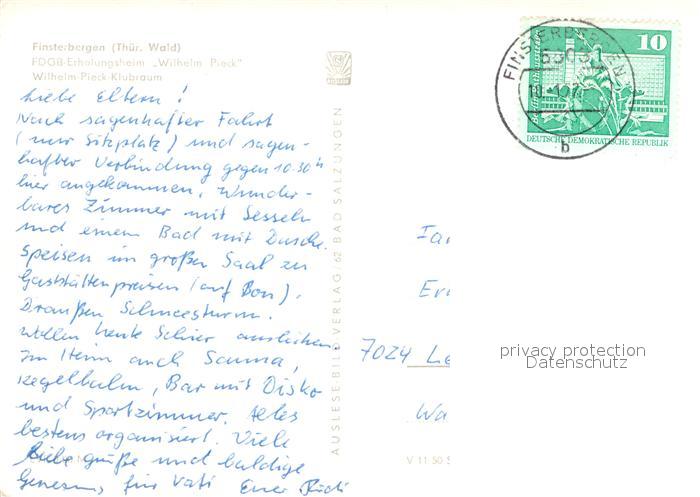 Finsterbergen (Thür. Wald)
FDGB-Erholungsheim „Wilhelm Pieck"
Wilhelm-Pieck-Klubraum
Liebe Eltern!
Nach sagenhafter Fahrt
(nur Sitzplatz) und sagen-
hafter Verbindung gegen 10.30 h
hier angekommen. Wunder-
bares Zimmer mit Sesseln
und einem Bad mit Dusche.
Speisen im großen Saal zu
Gaststättenpreisen (auf Bon).
Draußen Schneesturm.
Wollen heute Schier ausleihen.
Im Heim auch Sauna,
Kegelbahn, Bar mit Disko
und Sportzimmer. Alles
bestens organisiert. Viele
liebe Grüße und baldige
Genesung für Vati Euer Rudi
AUSLESE-BILD-VERLAG 62 BAD SALZUNGEN
FINSTERBERGEN
b
10
DEUTSCHE DEMOKRATISCHE REPUBLIK
7024 Le
Wa
V 11 50
privacy protection
Datenschutz